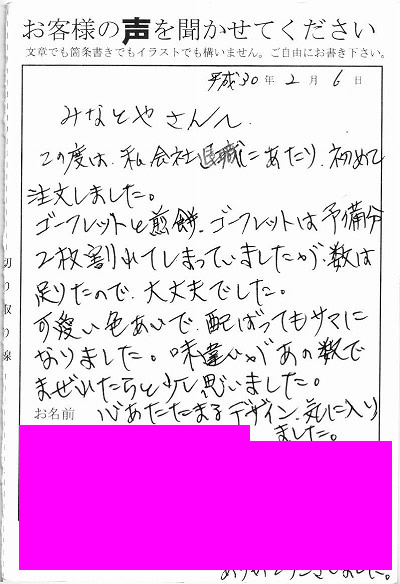 お客様の声を聞かせてください
文章でも箇条書きでもイラストでも構いません。ご自由にお書き下さい。
平成30年 2月 6日
みなとやさんへ
この度は、私、会社退職にあたり、初めて
注文しました。
ゴーフレットと煎餅、ゴーフレットは予備分
2枚割れてしまっていましたが、数は
足りたので、大丈夫でした。
可愛い色あいで、配ばってもサマに
なりました。味違いがあの数で
まぜれたらと少し思いました。
お名前 心あたたまるデザイン、気に入り
ました。
切り取り線